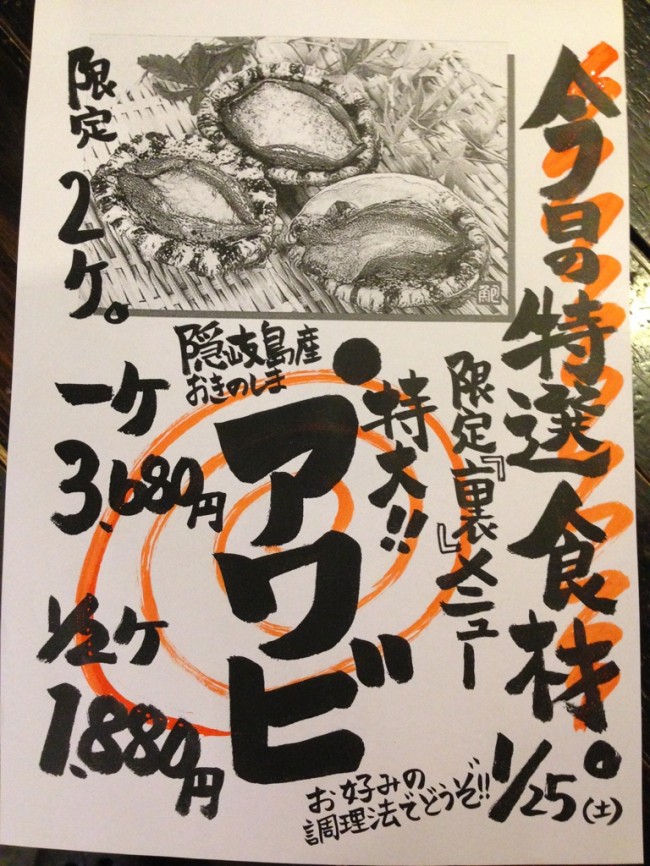 今日の特選食材。
1/25(土)
限定『裏』メニュー
特大!!
・アワビ
隠岐島産
おきのしま
お好みの
調理法でどうぞ!!
限定2ケ。
一ケ
3,680円
1/2ケ
1,880円